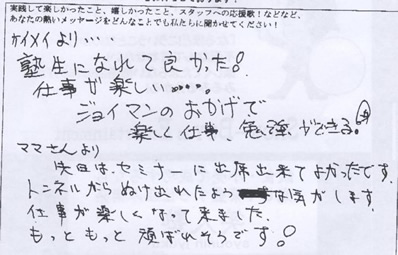 実践して楽しかったこと、嬉しかったこと、スタッフへの応援歌！などなど、
あなたの熱いメッセージをどんなことでも私たちに聞かせてください！
ケイメイより・・・
塾生になれて良かった!
仕事が楽しい・・・・。
ジョイマンのおかげで
楽しく仕事、勉強ができる。
ママさんより
先日は、セミナーに出席出来てよかったです。
トンネルからぬけ出れたような気がします。
仕事が楽しくなって来ました。
もっともっと頑ばれそうです!